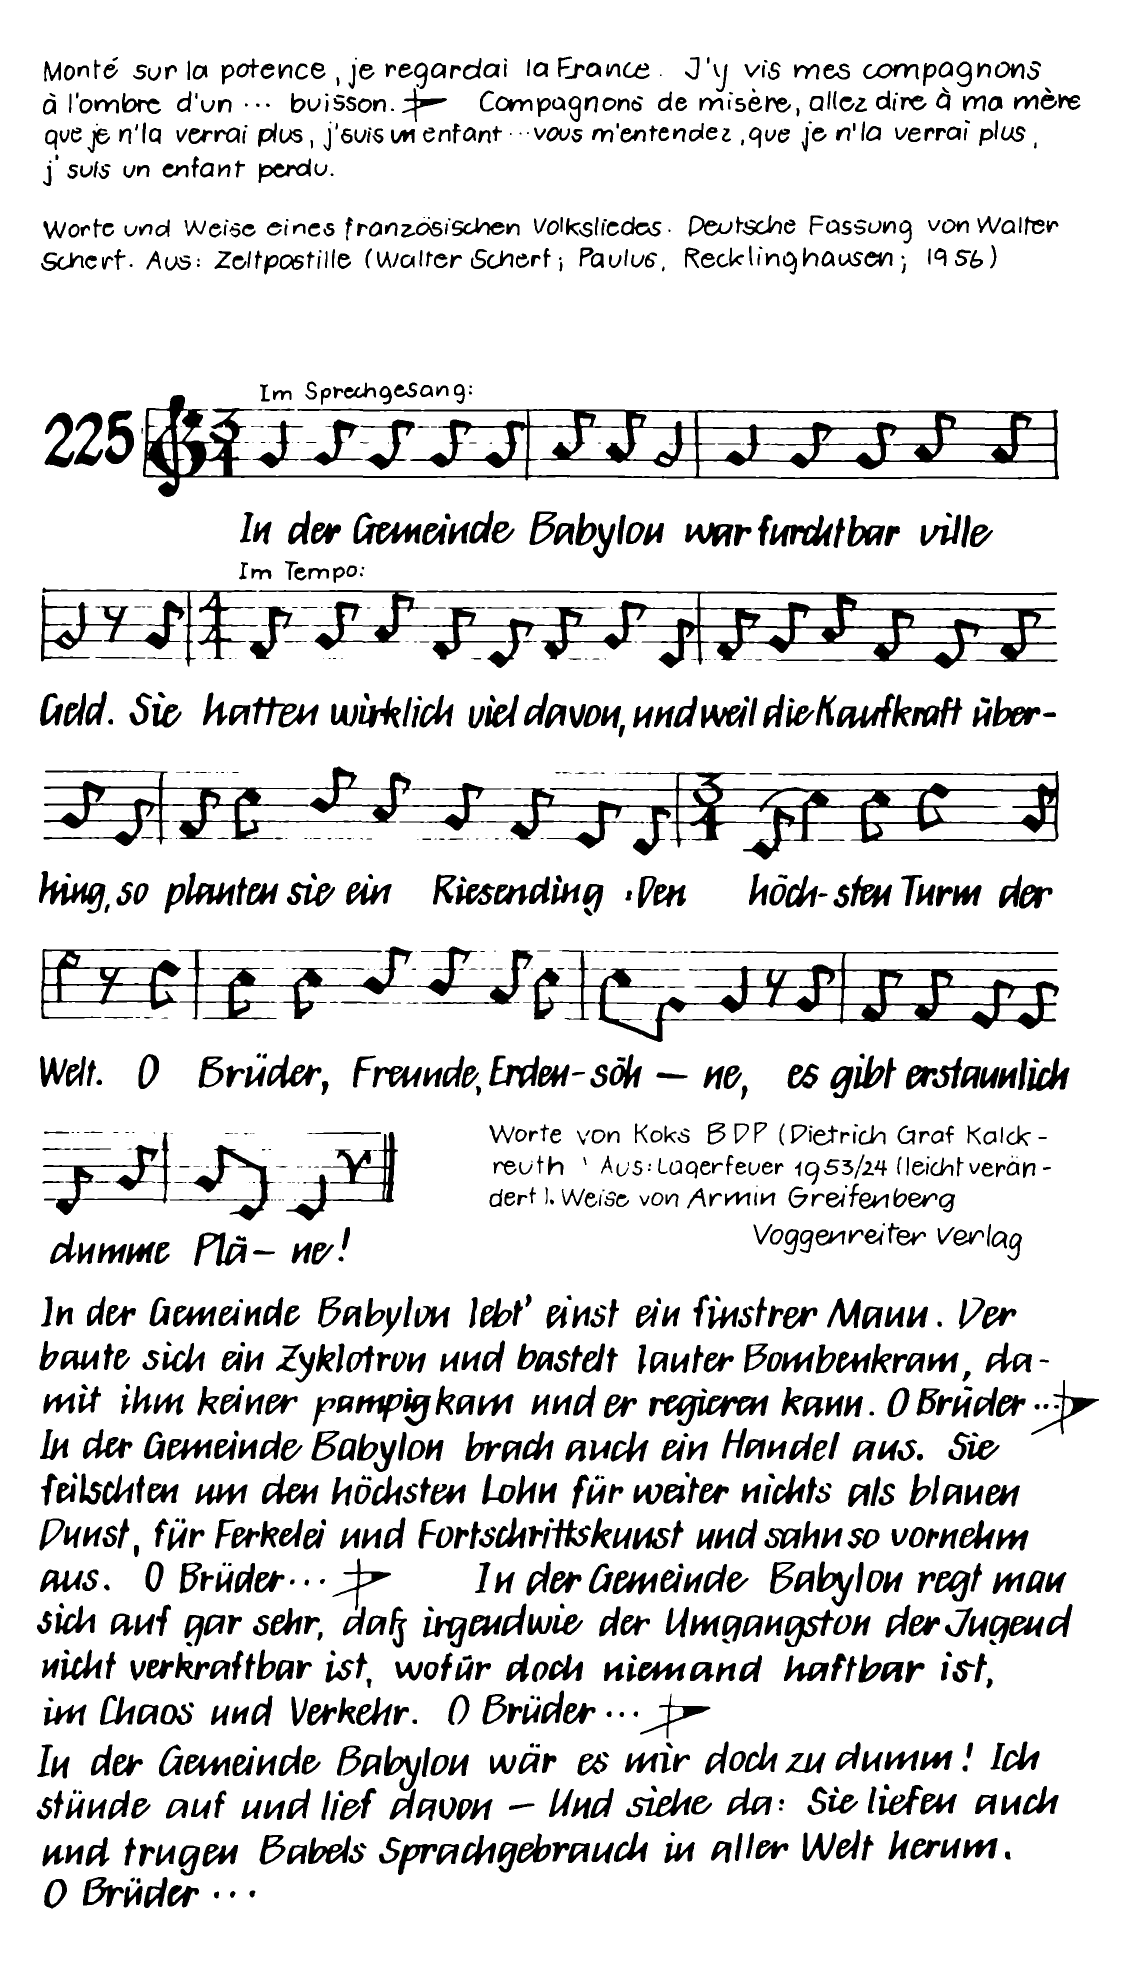 Monté sur la potence, je regardai la France. J'y vis mes compagnons
à l'ombre d'un ... buisson. Compagnons de misère, allez dire à ma mère
que je n'la verrai plus, j'suis un enfant ... vous m'entendez, que je n'la verrai plus,
j'suis un enfant perdu.
Worte und Weise eines französischen Volksliedes. Deutsche Fassung von Walter
Scherf. Aus: Zeltpostille (Walter Scherf; Paulus, Recklinghausen; 1956)
Im Sprechgesang:
225 3/4
In der Gemeinde Babylon war furchtbar ville
Im Tempo:
4/4
Geld. Sie hatten wirklich viel davon, und weil die Kaufkraft über-
3/4
hing, so planten sie ein Riesending: Den höch-sten Turm der
Welt. O Brüder, Freunde, Erden-söh – ne, es gibt erstaunlich
dumme Plä – ne!
Worte von Koks BDP (Dietrich Graf Kalck-
reuth ' Aus: Lagerfeuer 1953/24 (leicht verän-
dert). Weise von Armin Greifenberg
Voggenreiter Verlag
In der Gemeinde Babylon lebt' einst ein finstrer Mann. Der
baute sich ein Zyklotron und bastelt lauter Bombenkram, da-
mit ihm keiner pampig kam und er regieren kann. O Brüder...
In der Gemeinde Babylon brach auch ein Handel aus. Sie
feilschten um den höchsten Lohn für weiter nichts als blauen
Dunst, für Ferkelei und Fortschrittskunst und sahn so vornehm
aus. O Brüder... In der Gemeinde Babylon regt man
sich auf gar sehr, daß irgendwie der Umgangston der Jugend
nicht verkraftbar ist, wofür doch niemand haftbar ist,
im Chaos und Verkehr. O Brüder...
In der Gemeinde Babylon wär es mir doch zu dumm! Ich
stünde auf und lief davon – Und siehe da: Sie liefen auch
und trugen Babels Sprachgebrauch in aller Welt herum.
O Brüder...